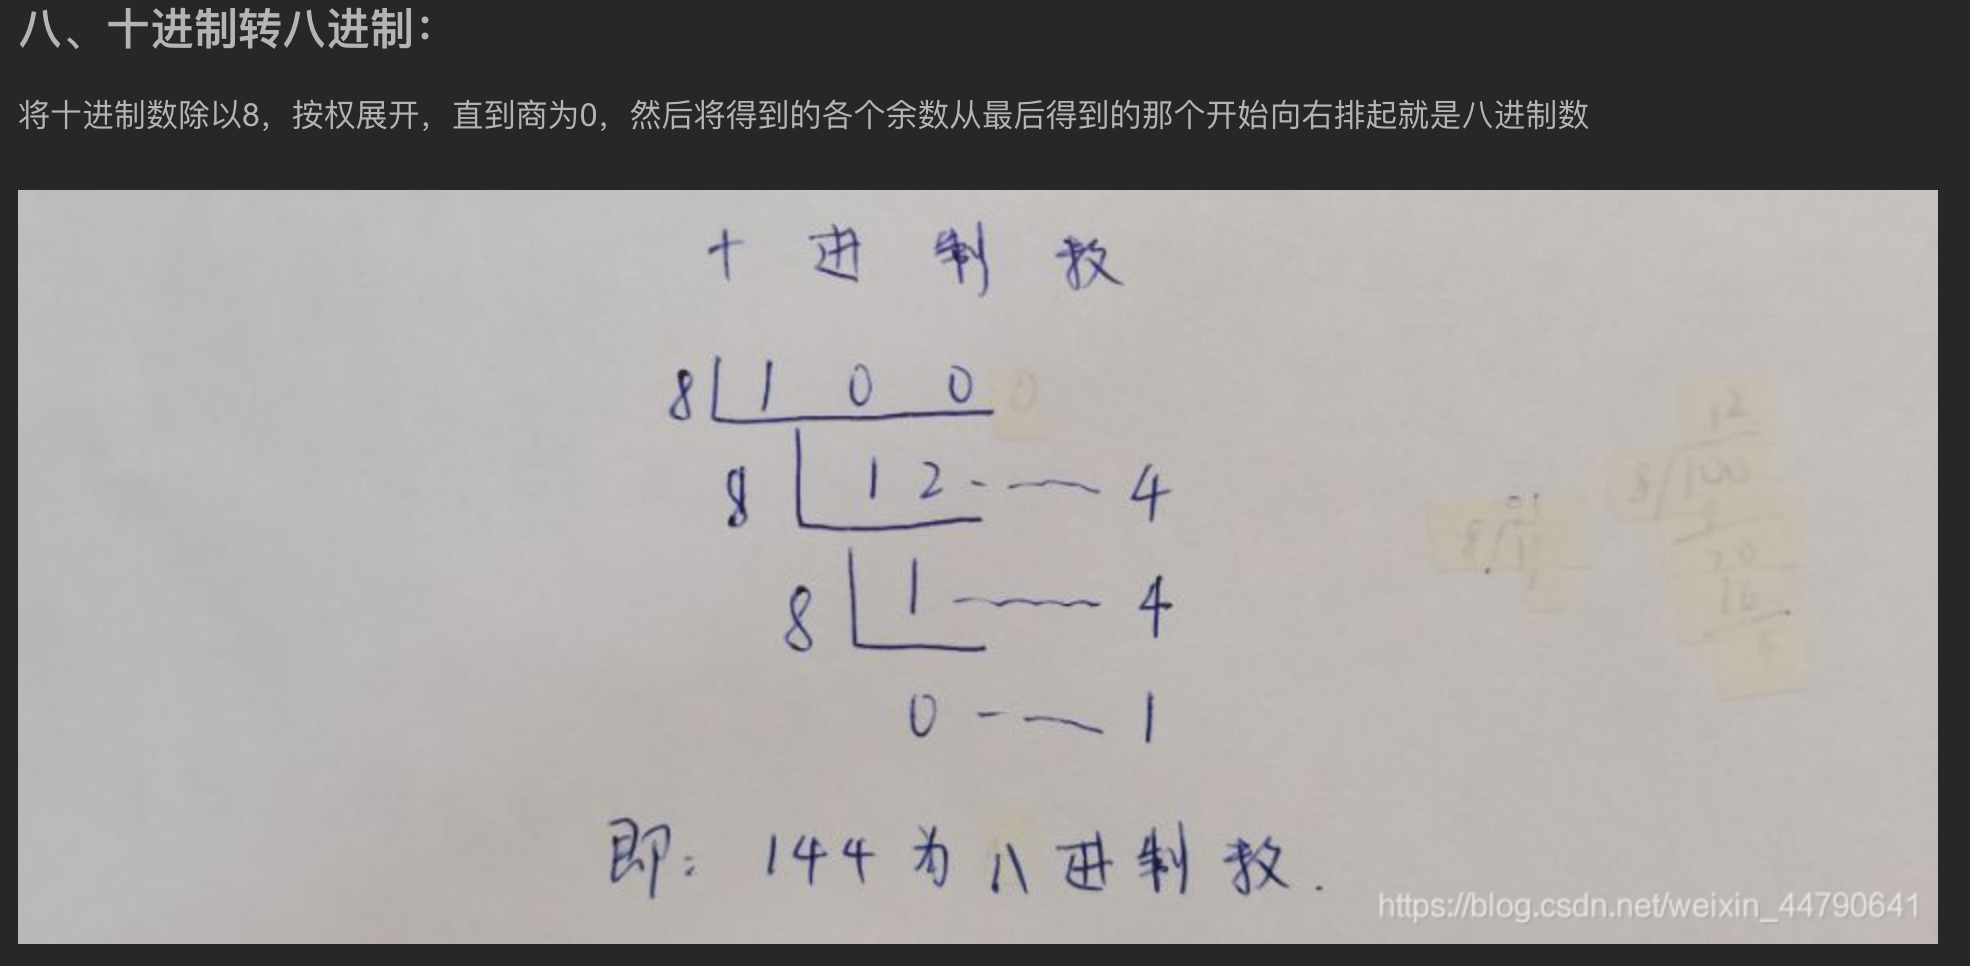 八、十进制转八进制：
将十进制数除以8，按权展开，直到商为0，然后将得到的各个余数从最后得到的那个开始向右排起就是八进制数
十进制数
8 1 0 0
8 1 2 4
8 1 4
0 1
12
8 100
8
20
16
即：144为八进制数.
https://blog.csdn.net/weixin_44790641